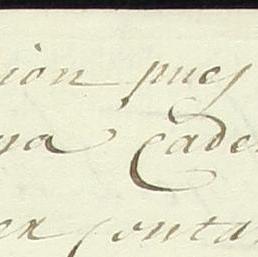 ion pues
na Cade
ex conta